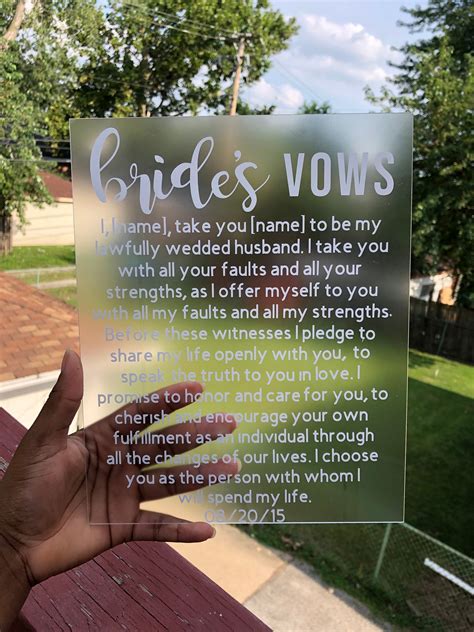 bride's VOWS
I, [name], take you [name] to be my
lawfully wedded husband. I take you
with all your faults and all your
strengths, as I offer myself to you
with all my faults and all my strengths.
Before these witnesses I pledge to
share my life openly with you, to
speak the truth to you in love. I
promise to honor and care for you, to
cherish and encourage your own
fulfillment as an individual through
all the changes of our lives. I choose
you as the person with whom I
will spend my life.
08/20/15